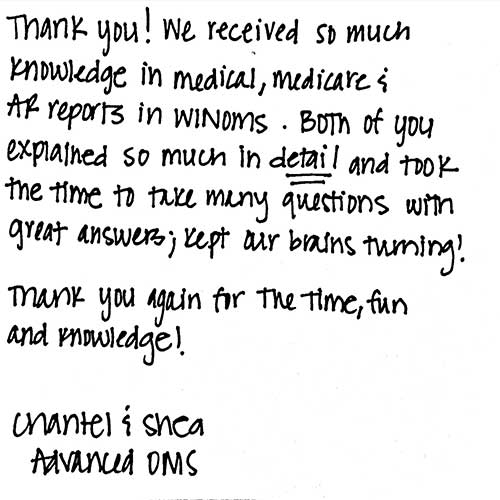 Thank you! We received so much
knowledge in medical, medicare &
AR reports in WINOMS. Both of you
explained so much in detail and took
the time to take many questions with
great answers; kept our brains turning!
Thank you again for the time, fun
and knowledge!
Chantel & Shea
Advanced OMS